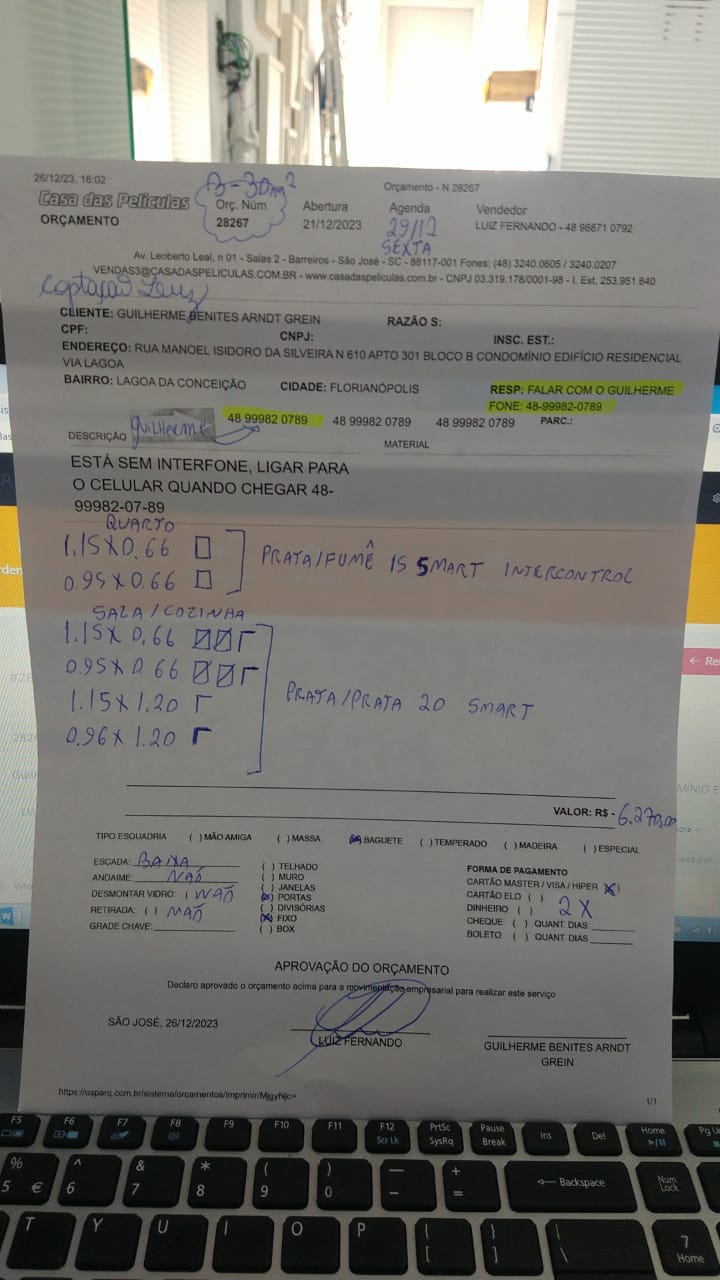 26/12/23, 16:02
Orçamento - N 28267
Casa das Películas
ORÇAMENTO
30m²
Orç. Núm
28267
Abertura
21/12/2023
Agenda
29/12
SEXTA
Vendedor
LUIZ FERNANDO - 48 98871 0792
Av. Leoberto Leal, n 01 - Salas 2 - Barreiros - São José - SC - 88117-001 Fones: (48) 3240.0605 / 3240.0207
VENDAS3@CASADASPELICULAS.COM.BR - www.casadaspeliculas.com.br - CNPJ 03.319.178/0001-98 - I. Est. 253.951.640
Captação Luiz
CLIENTE: GUILHERME BENITES ARNDT GREIN RAZÃO S:
CPF: CNPJ: INSC. EST.:
ENDEREÇO: RUA MANOEL ISIDORO DA SILVEIRA N 610 APTO 301 BLOCO B CONDOMÍNIO EDIFÍCIO RESIDENCIAL
VIA LAGOA
BAIRRO: LAGOA DA CONCEIÇÃO CIDADE: FLORIANÓPOLIS RESP: FALAR COM O GUILHERME
FONE: 48-99982-0789
Guilherme 48 99982 0789 48 99982 0789 48 99982 0789 PARC.:
DESCRIÇÃO MATERIAL
ESTÁ SEM INTERFONE, LIGAR PARA
O CELULAR QUANDO CHEGAR 48-
99982-07-89
QUARTO
1.15X0.66
0.95X0.66
PRATA/FUMÊ 15 SMART INTERCONTROL
SALA/COZINHA
1.15X0,66
0.95X0.66
1.15X1.20
0.96X1.20
PRATA/PRATA 20 SMART
VALOR: R$ - 6.270,00
TIPO ESQUADRIA ( ) MÃO AMIGA ( ) MASSA (X) BAGUETE ( ) TEMPERADO ( ) MADEIRA ( ) ESPECIAL
ESCADA: BAIXA
ANDAIME: NAÕ
DESMONTAR VIDRO: ( ) NAÕ
RETIRADA: ( ) NAÕ
GRADE CHAVE:
( ) TELHADO
( ) MURO
( ) JANELAS
(X) PORTAS
( ) DIVISÓRIAS
(X) FIXO
( ) BOX
FORMA DE PAGAMENTO
CARTÃO MASTER / VISA / HIPER (X)
CARTÃO ELO ( )
DINHEIRO ( ) 2X
CHEQUE ( ) QUANT. DIAS:
BOLETO ( ) QUANT. DIAS
APROVAÇÃO DO ORÇAMENTO
Declaro aprovado o orçamento acima para a movimentação empresarial para realizar este serviço
SÃO JOSÉ, 26/12/2023
LUIZ FERNANDO
GUILHERME BENITES ARNDT
GREIN
https://osparq.com.br/sistema/orcamentos/imprimir/MjgyNjc=
1/1
F5 F6 F7 F8 F9 F10 F11 F12 PrtSc Pause Ins Del Home Pg U
Scr Lk SysRq Break
% ^ & * ( ) — +
5 € 6 7 8 9 0 - = Backspace Num
Lock
T Y U I O P { } | 7
[ ] \ Home